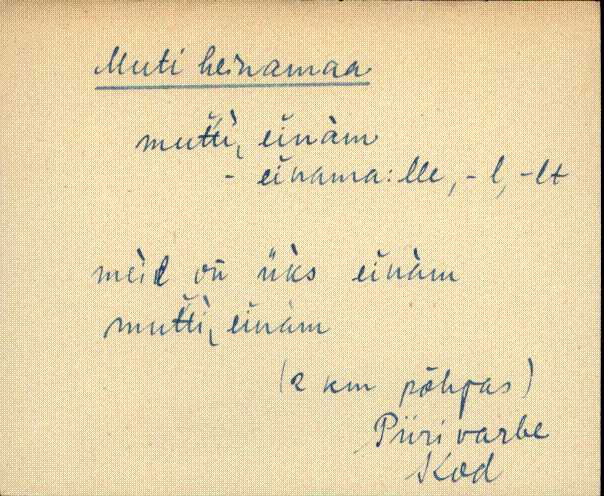 Muti heinamaa
mut̆t̆ì, eĭnàm
- eĭnama:lle, -l, -lt
meìl oñ ùks eĭnàm
mut̆t̆ì, eĭnàm
(2 km põhjas)
Piirivarbe
Kod